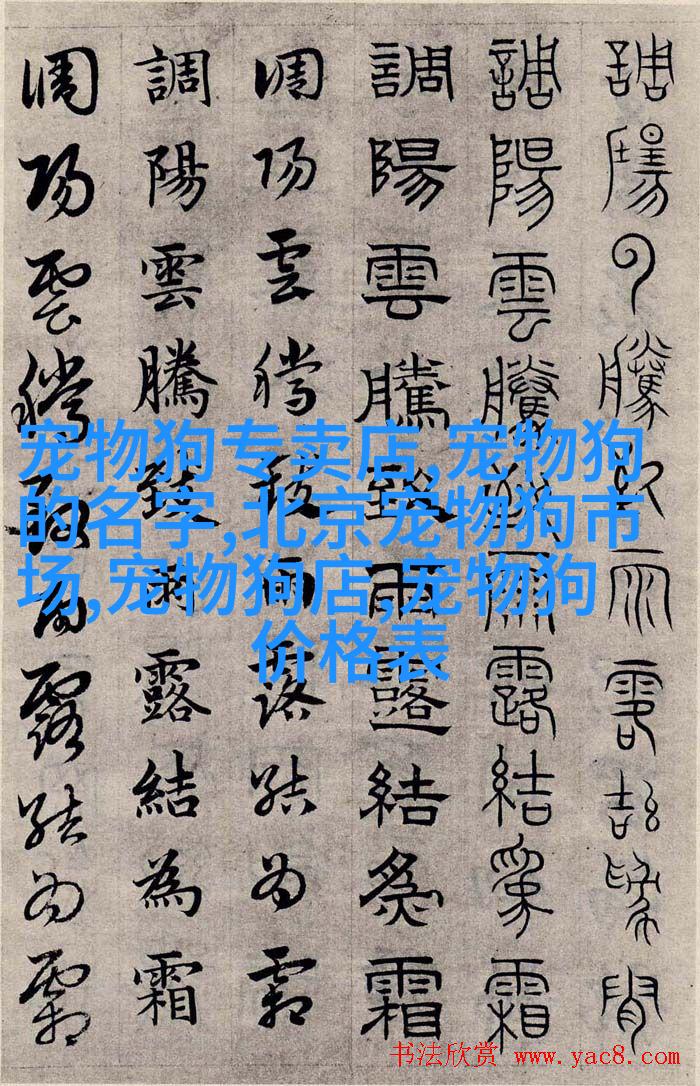 調陽雲騰致雨露結為霜
調陽雲騰致雨露結為霜
調陽雲騰致雨露結為霜
調陽雲騰致雨露結為霜
調陽雲騰致雨露結為霜
調陽雲騰致雨露結為霜
宠物狗专卖店,宠物狗
的名字,北京宠物狗市
场,宠物狗店,宠物狗
价格表
书法欣赏 www.yac8.com